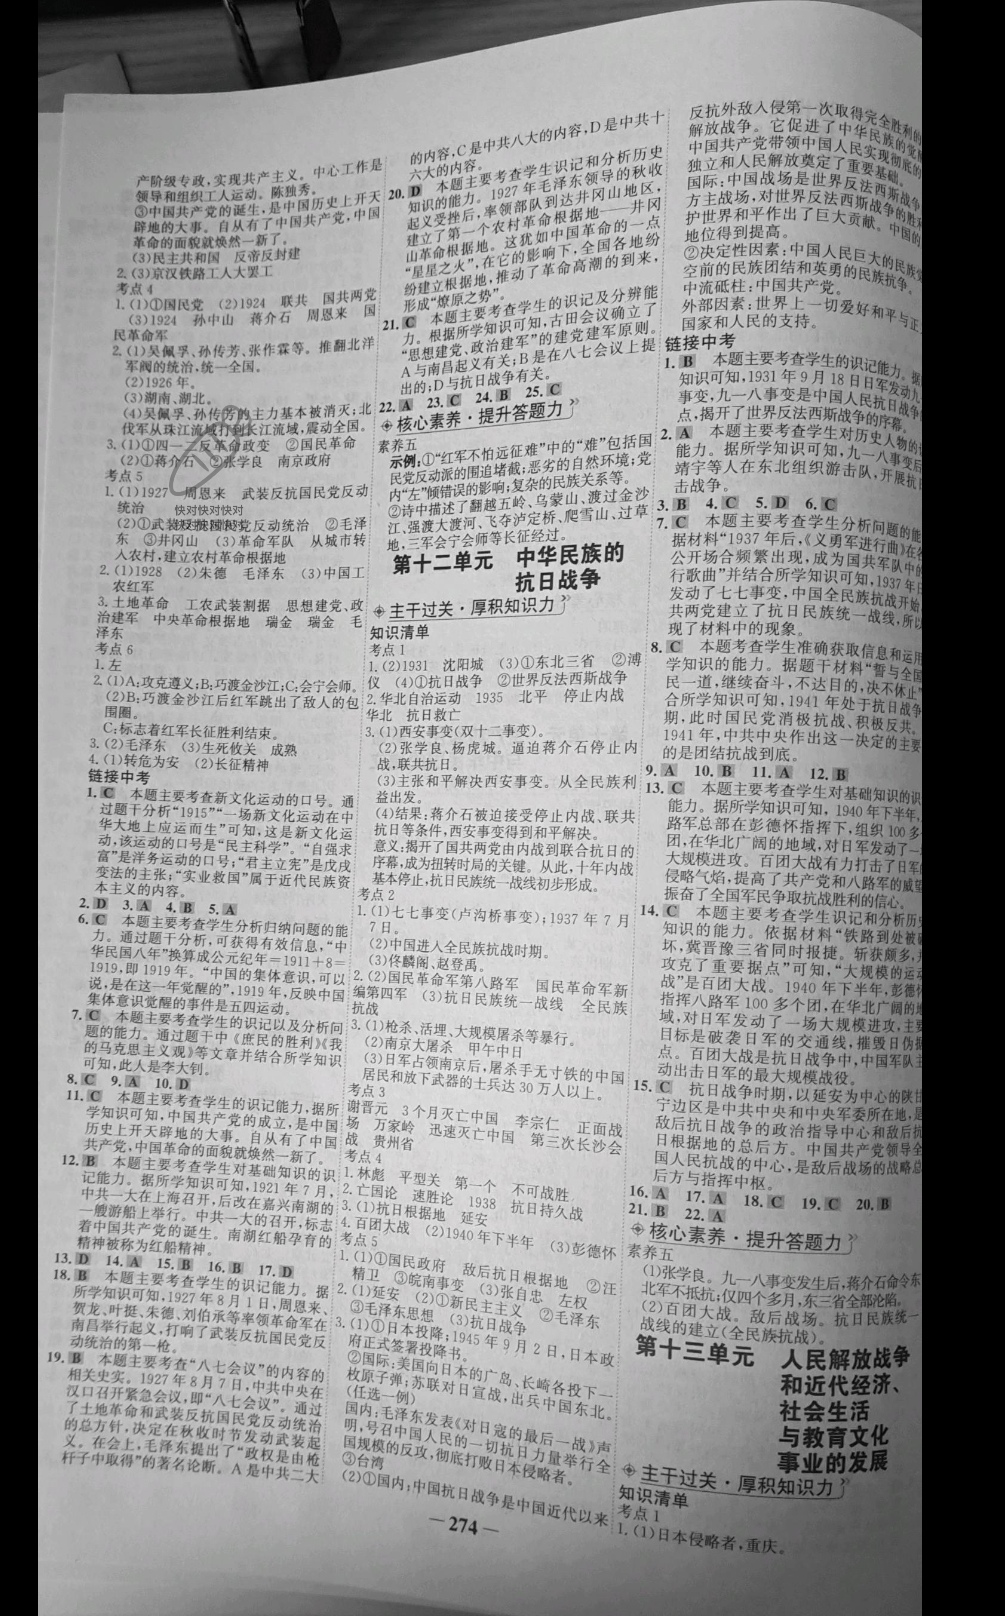 产阶级专政,实现共产主义。中心工作是
领导和组织工人运动。陈独秀。
③中国共产党的诞生,是中国历史上开天
辟地的大事。自从有了中国共产党,中国
革命的面貌就焕然一新了。
(3)民主共和国 反帝反封建
2.(3)京汉铁路工人大罢工
考点4
1.(1)①国民党 (2)1924 联共 国共两党
(3)1924 孙中山 蒋介石 周恩来 国
民革命军
2.(1)吴佩孚、孙传芳、张作霖等。推翻北洋
军阀的统治,统一全国。
(2)1926年。
(3)湖南、湖北。
(4)吴佩孚、孙传芳的主力基本被消灭;北
伐军从珠江流域打到长江流域,震动全国。
3.(1)①四一二反革命政变 ②国民革命
(2)①蒋介石 ②张学良 南京政府
考点5
1.(1)1927 周恩来 武装反抗国民党反动
统治 快对快对快对
(2)①武装反抗国民党反动统治 ②毛泽
东 ③井冈山 (3)革命军队 从城市转
入农村,建立农村革命根据地
2.(1)1928 (2)朱德 毛泽东 (3)中国工
农红军
3.土地革命 工农武装割据 思想建党、政
治建军 中央革命根据地 瑞金 瑞金 毛
泽东
考点6
1.左
2.(1)A:攻克遵义;B:巧渡金沙江;C:会宁会师。
(2)B:巧渡金沙江后红军跳出了敌人的包
围圈。
C:标志着红军长征胜利结束。
3.(2)毛泽东 (3)生死攸关 成熟
4.(1)转危为安 (2)长征精神
链接中考
1.C 本题主要考查新文化运动的口号。通
过题干分析“1915”“一场新文化运动在中
华大地上应运而生”可知,这是新文化运
动,该运动的口号是“民主科学”。“自强求
富”是洋务运动的口号;“君主立宪”是戊戌
变法的主张;“实业救国”属于近代民族资
本主义的内容。
2.D 3.A 4.B 5.A
6.C 本题主要考查学生分析归纳问题的能
力。通过题干分析,可获得有效信息,“中
华民国八年”换算成公元纪年=1911+8=
1919,即1919年。“中国的集体意识,可以
说,是在这一年觉醒的”,1919年,反映中国
集体意识觉醒的事件是五四运动。
7.C 本题主要考查学生的识记以及分析问
题的能力。通过题干中《庶民的胜利》《我
的马克思主义观》等文章并结合所学知识
可知,此人是李大钊。
8.C 9.A 10.D
11.C 本题主要考查学生的识记能力,据所
学知识可知,中国共产党的成立,是中国
历史上开天辟地的大事。自从有了中国
共产党,中国革命的面貌就焕然一新了。
12.B 本题主要考查学生对基础知识的识
记能力。据所学知识可知,1921年7月,
中共一大在上海召开,后改在嘉兴南湖的
一艘游船上举行。中共一大的召开,标志
着中国共产党的诞生。南湖红船孕育的
精神被称为红船精神。
13.D 14.A 15.B 16.B 17.D
18.B 本题主要考查学生的识记能力。据
所学知识可知,1927年8月1日,周恩来、
贺龙、叶挺、朱德、刘伯承等率领革命军在
南昌举行起义,打响了武装反抗国民党反
动统治的第一枪。
19.B 本题主要考查“八七会议”的内容的
相关史实。1927年8月7日,中共中央在
汉口召开紧急会议,即“八七会议”。通过
了土地革命和武装反抗国民党反动统治
的总方针,决定在秋收时节发动武装起
义。在会上,毛泽东提出了“政权是由枪
杆子中取得”的著名论断。A是中共二大
的内容,C是中共八大的内容,D是中共十
六大的内容。
20.D 本题主要考查学生识记和分析历史
知识的能力。1927年毛泽东领导的秋收
起义受挫后,率领部队到达井冈山地区,
建立了第一个农村革命根据地——井冈
山革命根据地。这犹如中国革命的一点
“星星之火”,在它的影响下,全国各地纷
纷建立根据地,推动了革命高潮的到来,
形成“燎原之势”。
21.C 本题主要考查学生的识记及分辨能
力。根据所学知识可知,古田会议确立了
“思想建党、政治建军”的建党建军原则。
A与南昌起义有关;B是在八七会议上提
出的;D与抗日战争有关。
22.A 23.C 24.B 25.C
核心素养·提升答题力
素养五
示例:①“红军不怕远征难”中的“难”包括国
民党反动派的围追堵截;恶劣的自然环境;党
内“左”倾错误的影响;复杂的民族关系等。
②诗中描述了翻越五岭、乌蒙山、渡过金沙
江、强渡大渡河、飞夺泸定桥、爬雪山、过草
地,三军会宁会师等长征经过。
第十二单元 中华民族的
抗日战争
主干过关·厚积知识力
知识清单
考点1
1.(2)1931 沈阳城 (3)①东北三省 ②溥
仪 (4)①抗日战争 ②世界反法西斯战争
2.华北自治运动 1935 北平 停止内战
华北 抗日救亡
3.(1)西安事变(双十二事变)。
(2)张学良、杨虎城。逼迫蒋介石停止内
战,联共抗日。
(3)主张和平解决西安事变。从全民族利
益出发。
(4)结果:蒋介石被迫接受停止内战、联共
抗日等条件,西安事变得到和平解决。
意义:揭开了国共两党由内战到联合抗日的
序幕,成为扭转时局的关键。从此,十年内战
基本停止,抗日民族统一战线初步形成。
考点2
1.(1)七七事变(卢沟桥事变);1937年7月
7日。
(2)中国进入全民族抗战时期。
(3)佟麟阁、赵登禹。
2.(2)国民革命军第八路军 国民革命军新
编第四军 (3)抗日民族统一战线 全民族
抗战
3.(1)枪杀、活埋、大规模屠杀等暴行。
(2)南京大屠杀 甲午中日
(3)日军占领南京后,屠杀手无寸铁的中国
居民和放下武器的士兵达30万人以上。
考点3
谢晋元 3个月灭亡中国 李宗仁 正面战
场 万家岭 迅速灭亡中国 第三次长沙会
战 贵州省
考点4
1.林彪 平型关 第一个 不可战胜
2.亡国论 速胜论 1938 抗日持久战
3.(1)抗日根据地 延安
4.百团大战 (2)1940年下半年 (3)彭德怀
考点5
1.(1)①国民政府 敌后抗日根据地 ②汪
精卫 ③皖南事变 (3)张自忠 左权
2.(1)延安 (2)①新民主主义 ②毛泽东
③毛泽东思想 (3)抗日战争
3.(1)①日本投降;1945年9月2日,日本政
府正式签署投降书。
②国际:美国向日本的广岛、长崎各投下一
枚原子弹;苏联对日宣战,出兵中国东北。
(任选一例)
国内:毛泽东发表《对日寇的最后一战》声
明,号召中国人民的一切抗日力量举行全
国规模的反攻,彻底打败日本侵略者。
③台湾
(2)①国内:中国抗日战争是中国近代以来
反抗外敌入侵第一次取得完全胜利的
解放战争。它促进了中华民族的觉
中国共产党带领中国人民实现彻底的
独立和人民解放奠定了重要基础。
国际:中国战场是世界反法西斯战争
方主战场,对世界反法西斯战争的胜
护世界和平作出了巨大贡献。中国的
地位得到提高。
②决定性因素:中国人民巨大的民族
空前的民族团结和英勇的民族抗争。
中流砥柱:中国共产党。
外部因素:世界上一切爱好和平与正
国家和人民的支持。
链接中考
1.B 本题主要考查学生的识记能力。据
知识可知,1931年9月18日日军发动九
事变,九一八事变是中国人民抗日战争
点,揭开了世界反法西斯战争的序幕。
2.A 本题主要考查学生对历史人物的
能力。据所学知识可知,九一八事变后
靖宇等人在东北组织游击队,开展抗日
击战争。
3.B 4.C 5.D 6.C
7.C 本题主要考查学生分析问题的能
据材料“1937年后,《义勇军进行曲》在各
公开场合频繁出现,成为国共军队中的
行歌曲”并结合所学知识可知,1937年日
发动了七七事变,中国全民族抗战开始
共两党建立了抗日民族统一战线,所以
现了材料中的现象。
8.C 本题考查学生准确获取信息和运用
学知识的能力。据题干材料“誓与全国
民一道,继续奋斗,不达目的,决不休止”
合所学知识可知,1941年处于抗日战争
期,此时国民党消极抗战、积极反共。
1941年,中共中央作出这一决定的主要
的是团结抗战到底。
9.A 10.B 11.A 12.B
13.C 本题主要考查学生对基础知识的识
能力。据所学知识可知,1940年下半年,
路军总部在彭德怀指挥下,组织100多
团,在华北广阔的地域,对日军发动了一
大规模进攻。百团大战有力打击了日军
侵略气焰,提高了共产党和八路军的威望
振奋了全国军民争取抗战胜利的信心。
14.C 本题主要考查学生识记和分析历史
知识的能力。依据材料“铁路到处被
坏,冀晋豫三省同时报捷。斩获颇多,
攻克了重要据点”可知,“大规模的运动
战”是百团大战。1940年下半年,彭德怀
指挥八路军100多个团,在华北广阔的地
域,对日军发动了一场大规模进攻,主要
目标是破袭日军的交通线,摧毁日伪据
点。百团大战是抗日战争中,中国军队主
动出击日军的最大规模战役。
15.C 抗日战争时期,以延安为中心的陕甘
宁边区是中共中央和中央军委所在地,是
敌后抗日战争的政治指导中心和敌后抗
日根据地的总后方。中国共产党领导全
国人民抗战的中心,是敌后战场的战略总
后方与指挥中枢。
16.A 17.A 18.C 19.C 20.B
21.B 22.A
核心素养·提升答题力
素养五
(1)张学良。九一八事变发生后,蒋介石命令东
北军不抵抗;仅四个多月,东三省全部沦陷。
(2)百团大战。敌后战场。抗日民族统一
战线的建立(全民族抗战)。
第十三单元 人民解放战争
和近代经济、
社会生活
与教育文化
事业的发展
主干过关·厚积知识力
知识清单
考点1
1.(1)日本侵略者,重庆。
—274—